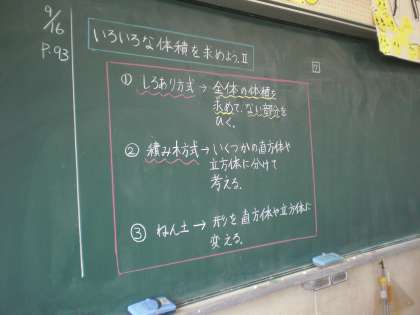 9/16
P.93
いろいろな体積を求めよう.Ⅱ
① しろあり方式→全体の体積を
求めて、ない部分を
ひく。
② 積み木方式→いくつかの直方体や
立方体に分けて
考える。
③ ねん土→形を直方体や立方体に
変える。